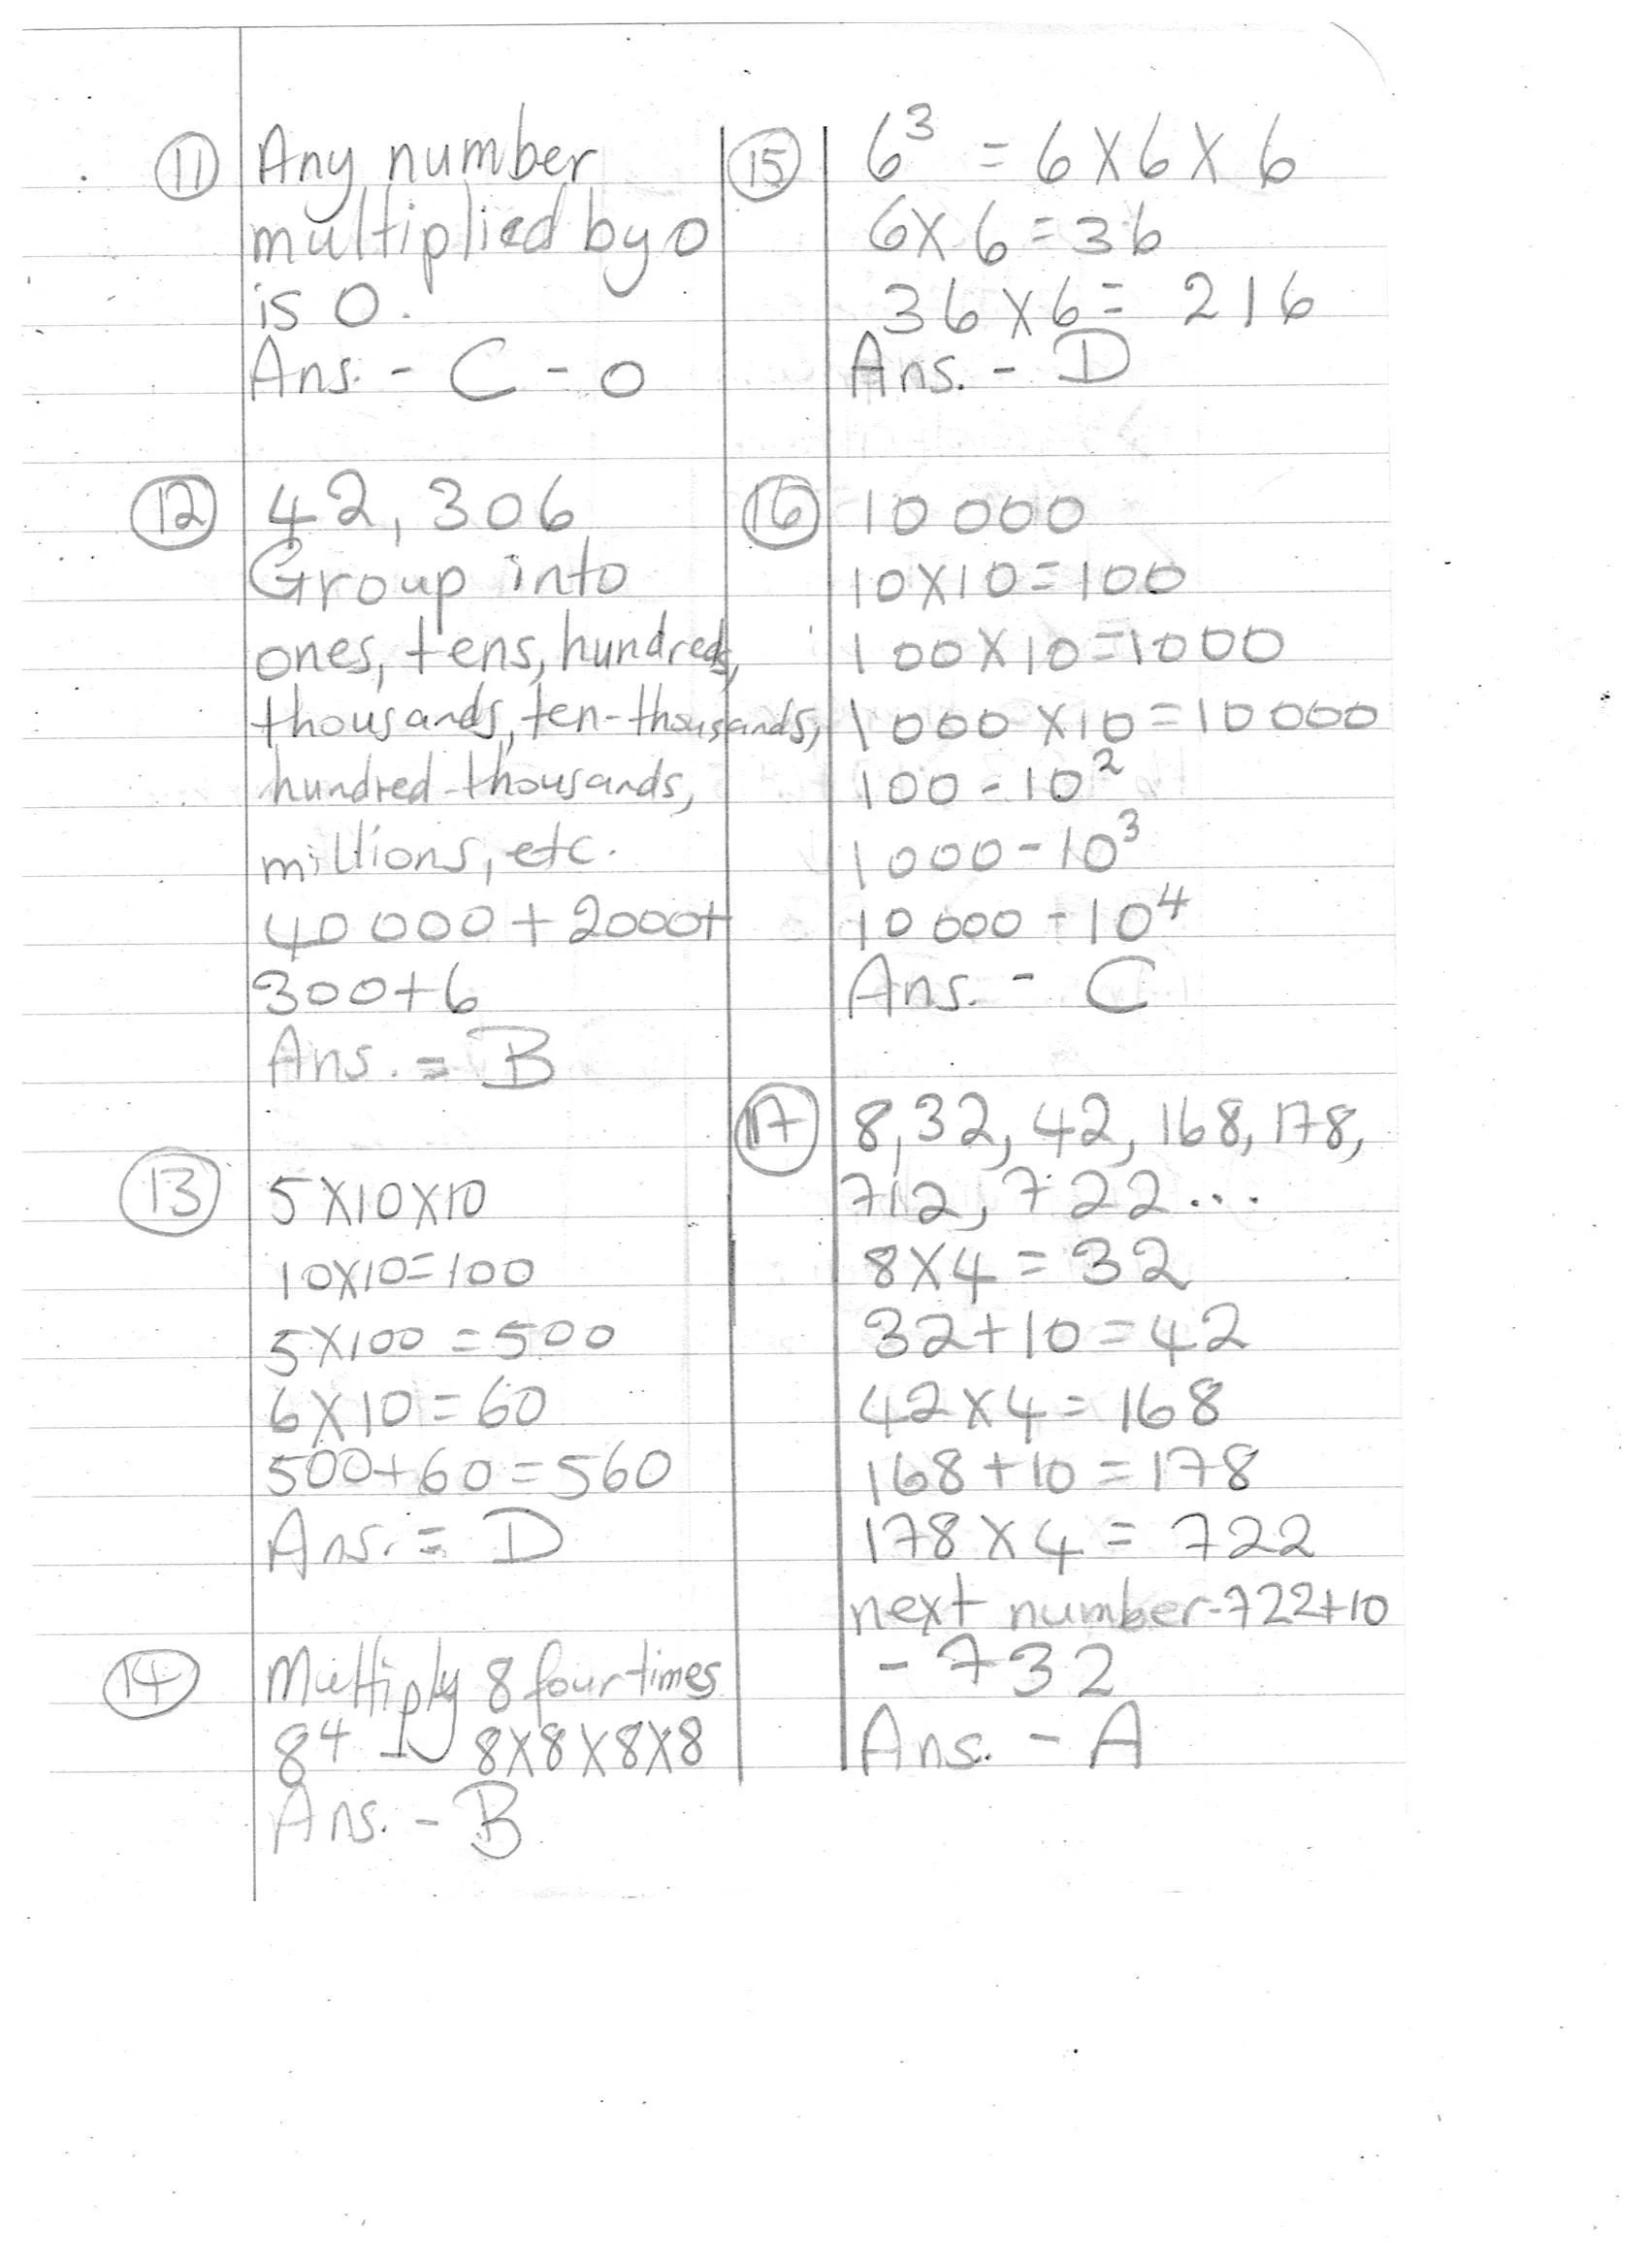 11 Any number
multiplied by 0
is 0.
Ans. - C - 0
12 42, 306
Group into
ones, tens, hundreds,
thousands, ten-thousands,
hundred-thousands,
millions, etc.
40 000 + 2000+
300+6
Ans. = B
13 5X10X10
10X10=100
5X100 = 500
6X10=60
500+60=560
Ans. = D
14 Multiply 8 four times
8⁴ → 8X8X8X8
Ans. - B
15 6³ = 6X6X6
6X6=36
36X6= 216
Ans. - D
16 10 000
10X10=100
100X10=1000
1000X10=10000
100 - 10²
1000 - 10³
10 000 - 10⁴
Ans. - C
17 8, 32, 42, 168, 178,
712, 722...
8X4=32
32+10=42
42X4=168
168+10=178
178X4=722
next number-722+10
- 732
Ans. - A